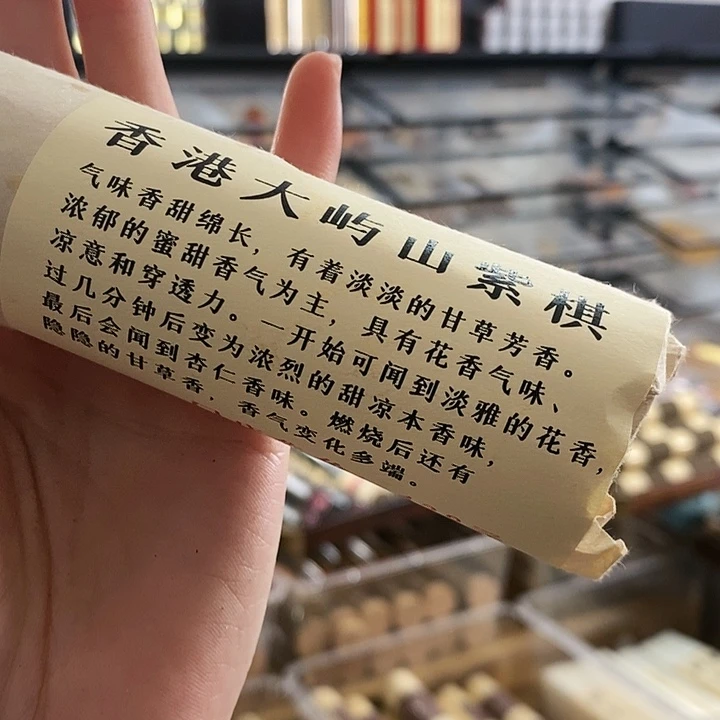 香港大屿山紫棋
气味香甜绵长，有着淡淡的甘草芳香。
浓郁的蜜甜香气为主，具有花香气味、
凉意和穿透力。一开始可闻到淡雅的花香，
过几分钟后变为浓烈的甜凉本香味，
最后会闻到杏仁香味。燃烧后还有
隐隐的甘草香，香气变化多端。